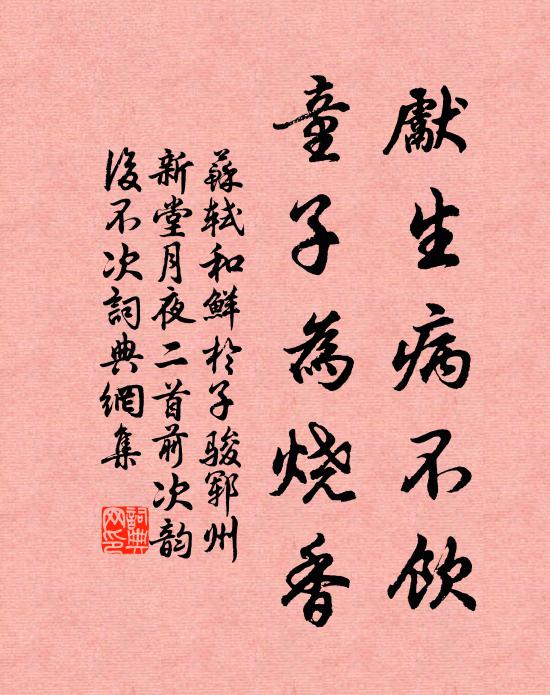 獻生病不飲
童子為燒香
蘇軾和鮮於子駿鄆州
新堂月夜二首前次韵
後不次詞典網集
詞典
网印